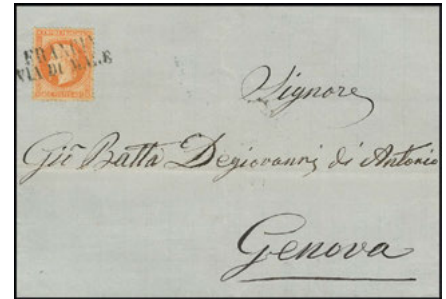 FRANCIA
VIA DI M.RE
Signore
Gio Batta Degiovanni di Antonio
Genova